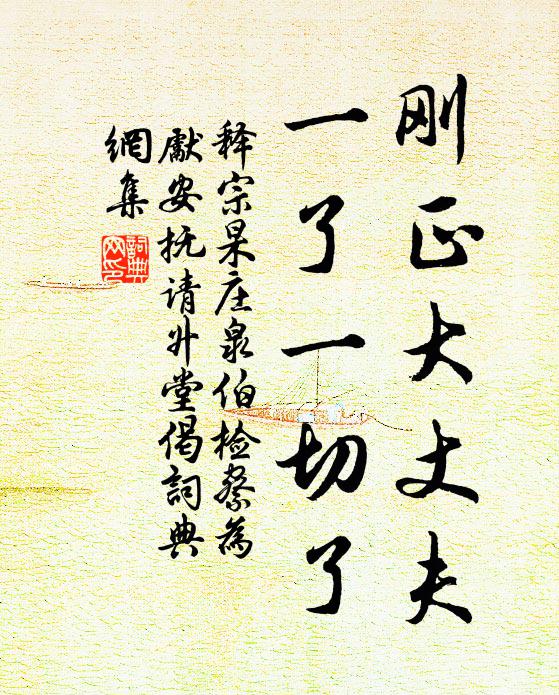 刚正大丈夫
一了一切了
释宗杲庄泉伯检察為
獻安抚请升堂偈詞典
網集
詞典網印